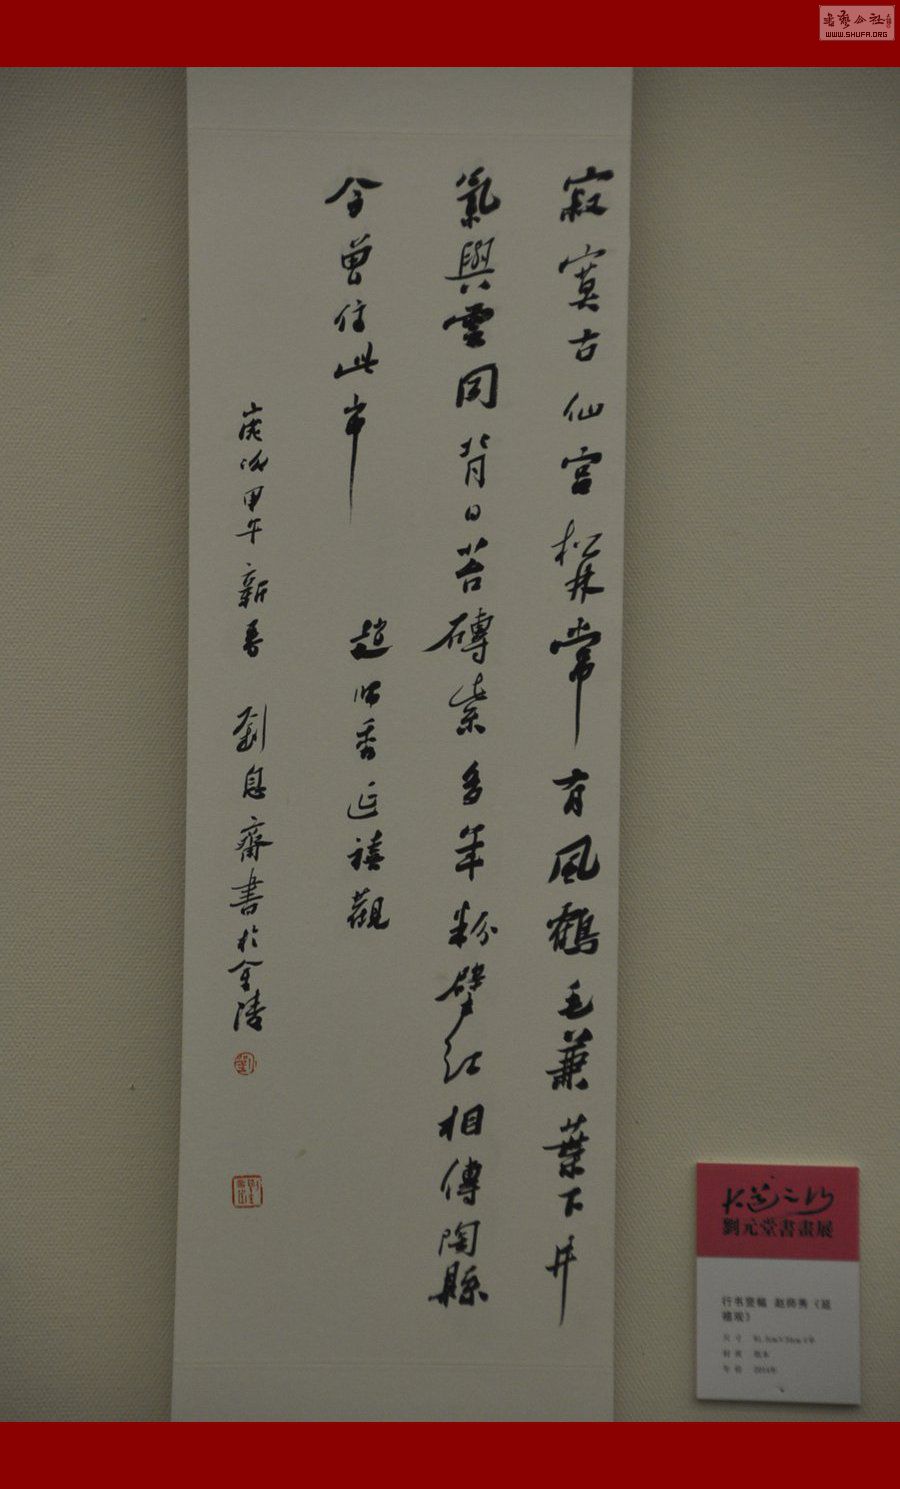 寂寞古仙宮松林常有風鶴毛兼葉下井
氣與雲同背日苔磚紫多年粉壁紅相傳陶縣
令曾住此中
趙師秀延禧觀
歲次甲午新春 劉息齋書於金陵
大道之行
劉元堂書畫展
行书竖幅 赵师秀《延
禧观》
尺寸
材质 纸本
年份 2014年
WWW.SHUFA.ORG